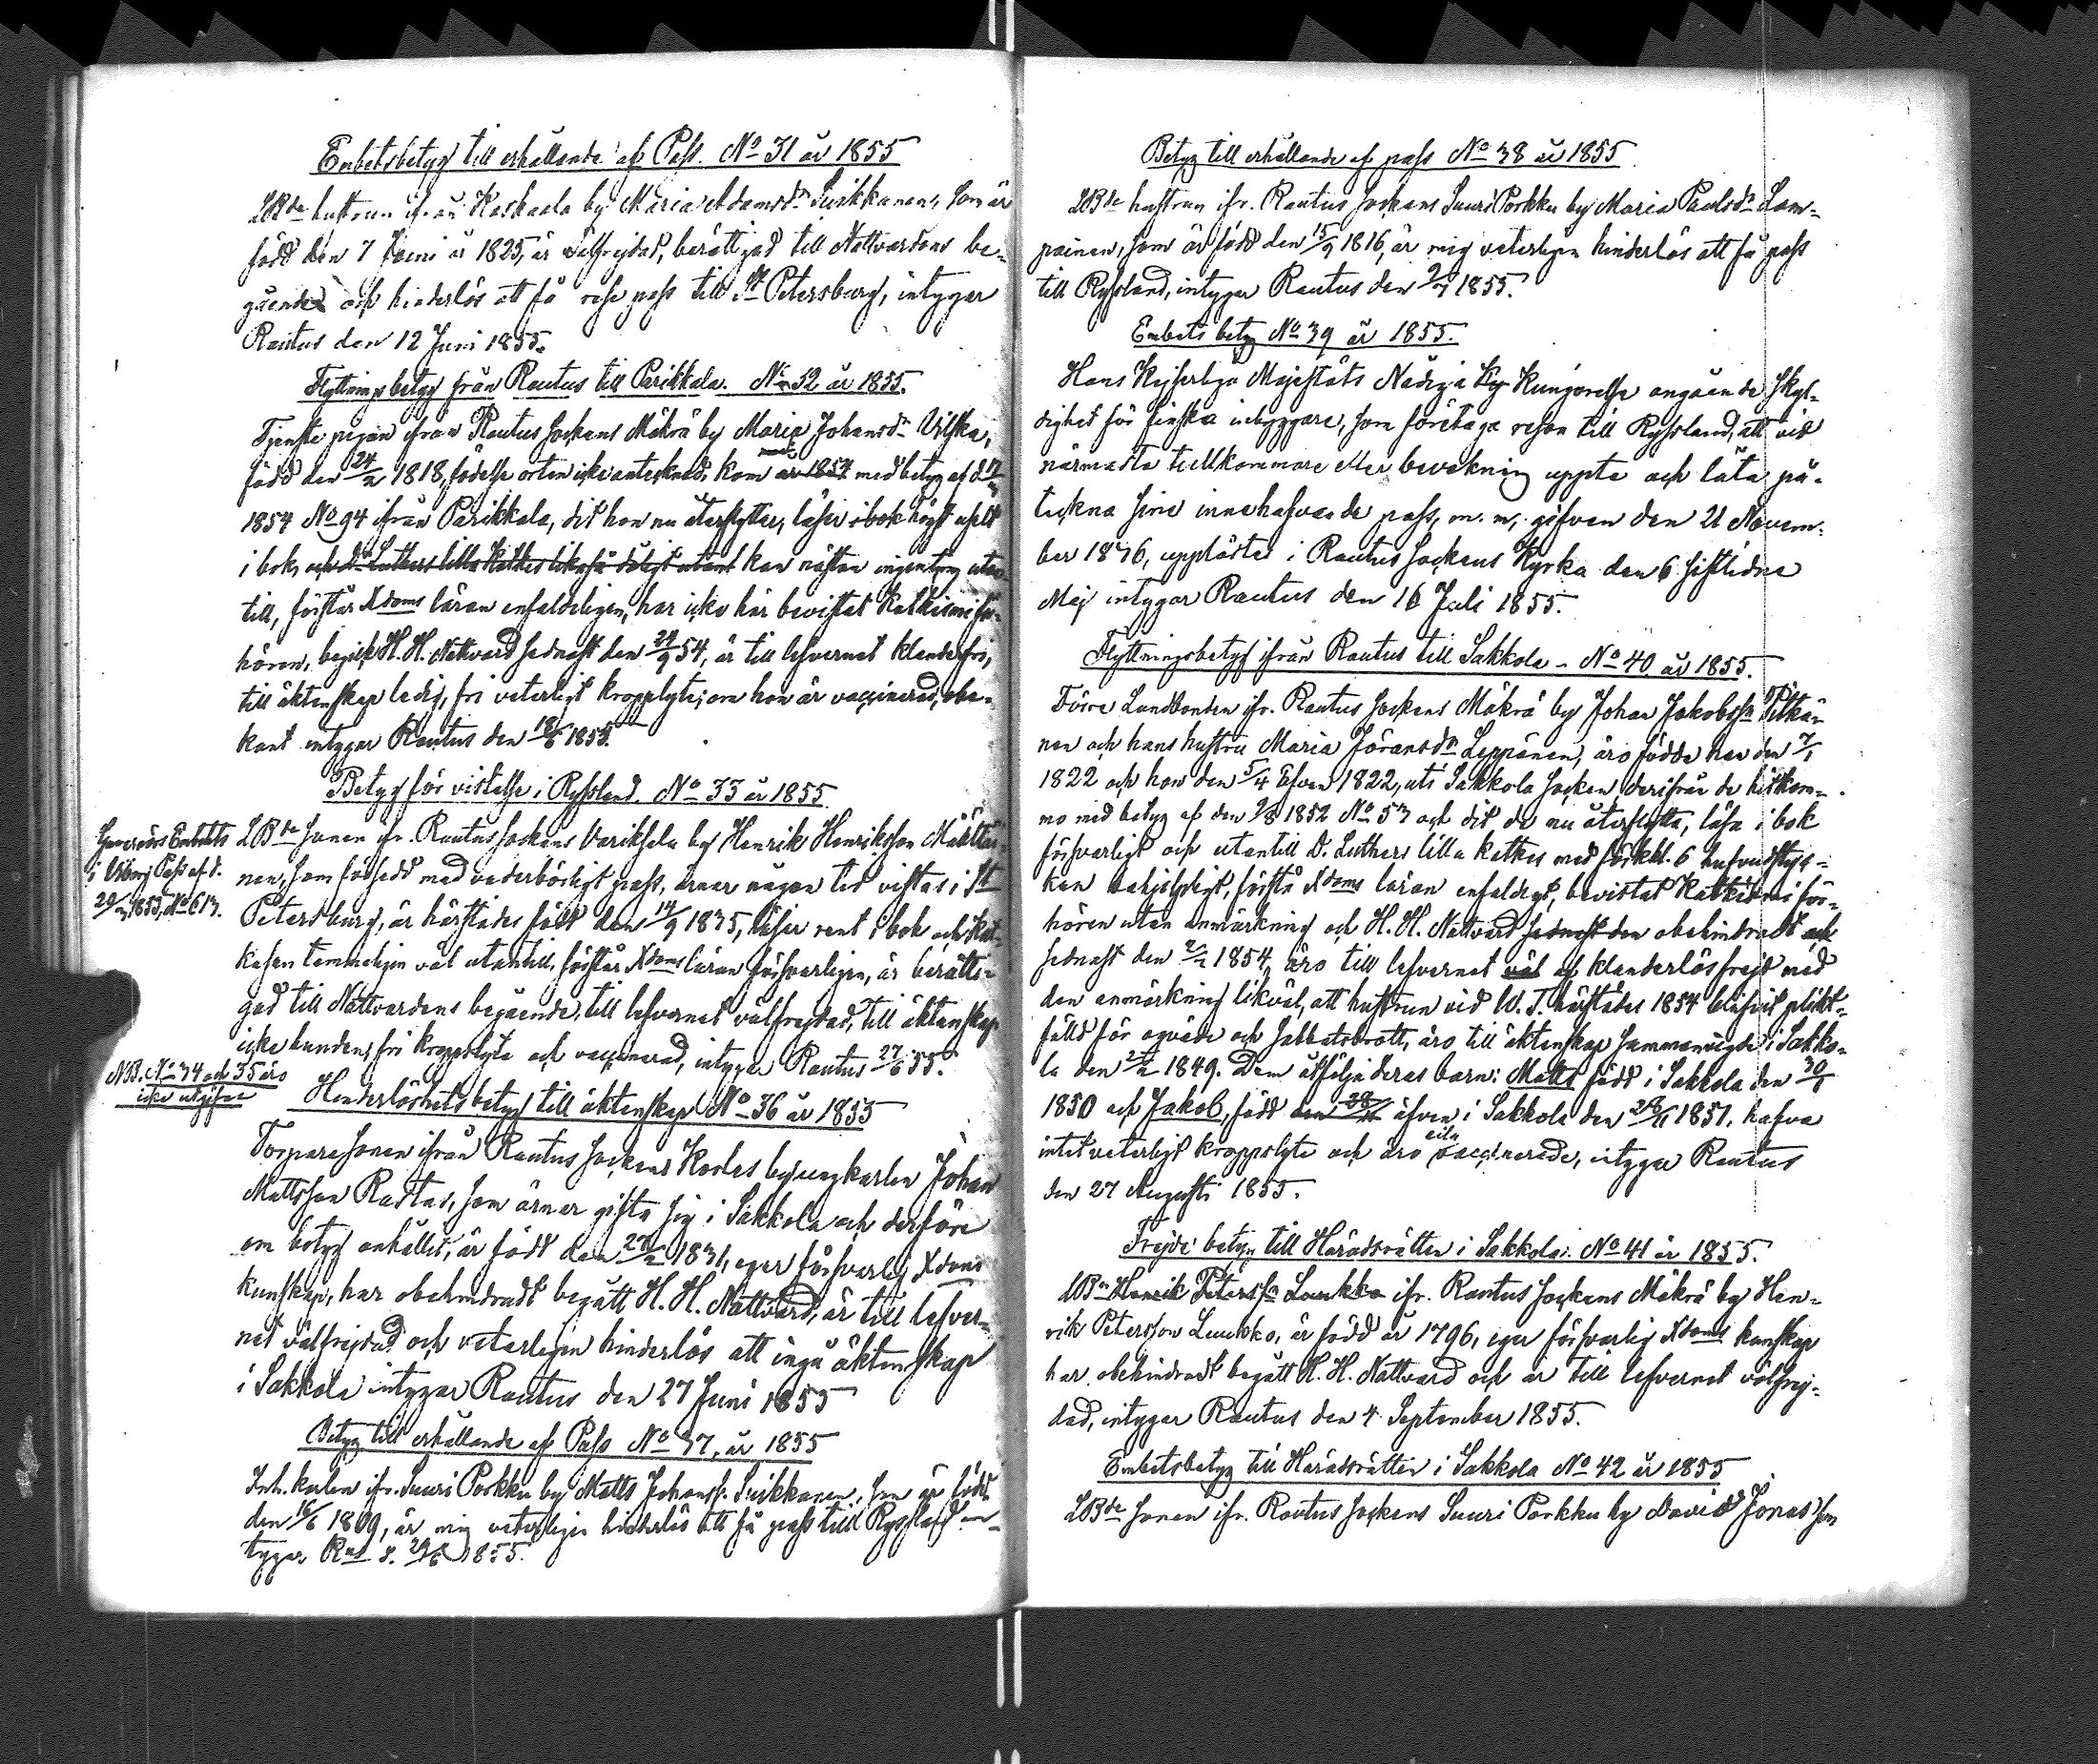 Embetsbetyg till erhållande af Pass. No 31 år 1855
LBde hustrun ifrån Kaskaala by Maria Adamsdr Suikkanen, som är
född den 7 Juni år 1825, är välfrejdad, berättigad till Nattvardens be-
gående och hinderlös att få rese pass till St Petersburg, intygar
Rautus den 12 Juni 1855.
Flyttningsbetyg från Rautus till Parikkala. No 32 år 1855.
Tjenste pigan ifrån Rautus Sockens Mäkrä by Maria Johansdr Vilska,
född den 24/2 1818, födelse orten icke antecknad, kom år 1854 med betyg af d.
1854 No 94 ifrån Parikkala, dit hon nu återflyttar, läser i bok högst uselt
i bok, och dr Luthers lilla Katkes likaså dåligt utant kan nästan ingenting utan
till, förstår Xdoms läran enfaldeligen, har icke här bevistat Katkismi för-
hören, begick H. H. Nattvard sednast den 24/9 54, är till lefvernet klanderfri,
till äktenskap ledig, fri veterligt kroppslyte; om hon är vaccinerad, obe-
kant intygar Rautus den 18/6 1855.
Betyg för vistelse i Ryssland. No 33 år 1855
Guvernörs Embetets
i Viborg Pass af d.
29/3 1855, No 613.
LBde Sonen ifr. Rautus Sockens Variksela by Henrik Henriksson Määttä-
nen, som försedd med vederbörligt pass, ärnar någon tid vistas i St
Petersburg, är härstädes född den 14/9 1835, läser rent i bok och Kat-
kesen temmeligen väl utantill, förstår Xdoms läran försvarligen, är berätti-
gad till Nattvardens begående, till lefvernet välfrejdad, till äktenskap
icke bunden, fri kroppslyte och vaccinerad, intygar Rautus 27/6 55.
NB. No 34 och 35 äro
icke utgifne
Hinderlöshetsbetyg till äktenskap No 36 år 1855
Torparesonen ifrån Rautus Sockens Korles by, ungkarlen Johan
Mattsson Rastas, som ärnar gifta sig i Sakkola och derföre
om betyg anhållit, är född den 27/2 1831, eger försvarlig Xdoms
kunskap, har obehindradt begått H. H. Nattvard, är till lefver-
net välfrejdad och veterligen hinderlös att ingå äktenskap
i Sakkola intygar Rautus den 27 Juni 1855
Betyg till erhållande af Pass No 37, år 1855
Inh. karlen ifr. Suuri Porkku by Matts Johanss. Suikkanen, som är född
den 16/6 1809, är mig veterligen hinderlös att få pass till Ryssland in-
tygar Rus d. 29/6 1855.
Betyg till erhållande af pass No 38 år 1855
LBde hustrun ifr. Rautus Sockens Suuri Porkku by Maria Paulsdr Lam-
painen, som är född den 15/9 1816, är mig veterligen hinderlös att få pass
till Ryssland, intygar Rautus den 2/7 1855.
Embets betyg No 39 år 1855.
Hans Kejserliga Majestäts Nådiga Ky Kungörelse angående skyl-
dighet för finska inbyggare, som företaga resor till Ryssland, att vid
närmaste tullkammare eller bevakning uppte och låta på-
teckna sine innehafvande pass, m. m., gifven den 21 Novem-
ber 1846, upplästes i Rautus Sockens Kyrka den 6 sistledne
Maj intygar Rautus den 16 Juli 1855.
Flyttningsbetyg ifrån Rautus till Sakkola - No 40 år 1855.
Förre Landbonden ifr. Rautus Sockens Mäkrä by Johan Jakobssn Pitkä-
nen och hans hustru Maria Göransdr Leppänen, äro födde han den 7/1
1822 och hon den 5/4 äfven 1822, uti Sakkola Socken, derifrån de hitkom-
mo med betyg af den 9/8 1852 No 53 och dit de nu återflytta, läsa i bok
försvarligt och utantill D. Luthers lilla Katkes med förkl. 6 hufvudstyc-
ken behjelpligt, förstå Xdoms läran enfaldigt, bevistat Katkismi för-
hören utan anmärkning och H. H. Nattvard sednast den obehindradt och
sednast den 2/2 1854, äro till lefvernet väl af klanderlös frejd med
den anmärkning likväl, att hustrun vid W. T. härstädes 1854 blifvit plikt-
fälld för oqväde och sabbatsbrott, äro till äktenskap sammanvigde i Sakko-
la den 26/12 1849. Dem åtfölja deras barn: Matts född i Sakkola den 30/8
1850 och Jakob, född den 28/11 äfven i Sakkola den 28/11 1851. hafva
intet veterligt kroppslyte och äro alla vaccinerade, intygar Rautus
den 27 Augusti 1855.
Frejde betyg till Häradsrätten i Sakkola: No 41 år 1855.
LBn Henrik Peterssn Luukko ifr. Rautus Sockens Mäkrä by Hen-
rik Petersson Luukko, är född år 1796, eger försvarlig Xdoms kunskap
har obehindradt begått H. H. Nattvard och är till lefvernet välfrej-
dad, intygar Rautus den 4 September 1855.
Embetsbetyg till Häradsrätten i Sakkola No 42 år 1855
LBde Sonen ifr. Rautus Sockens Suuri Porkku by David Jonasson